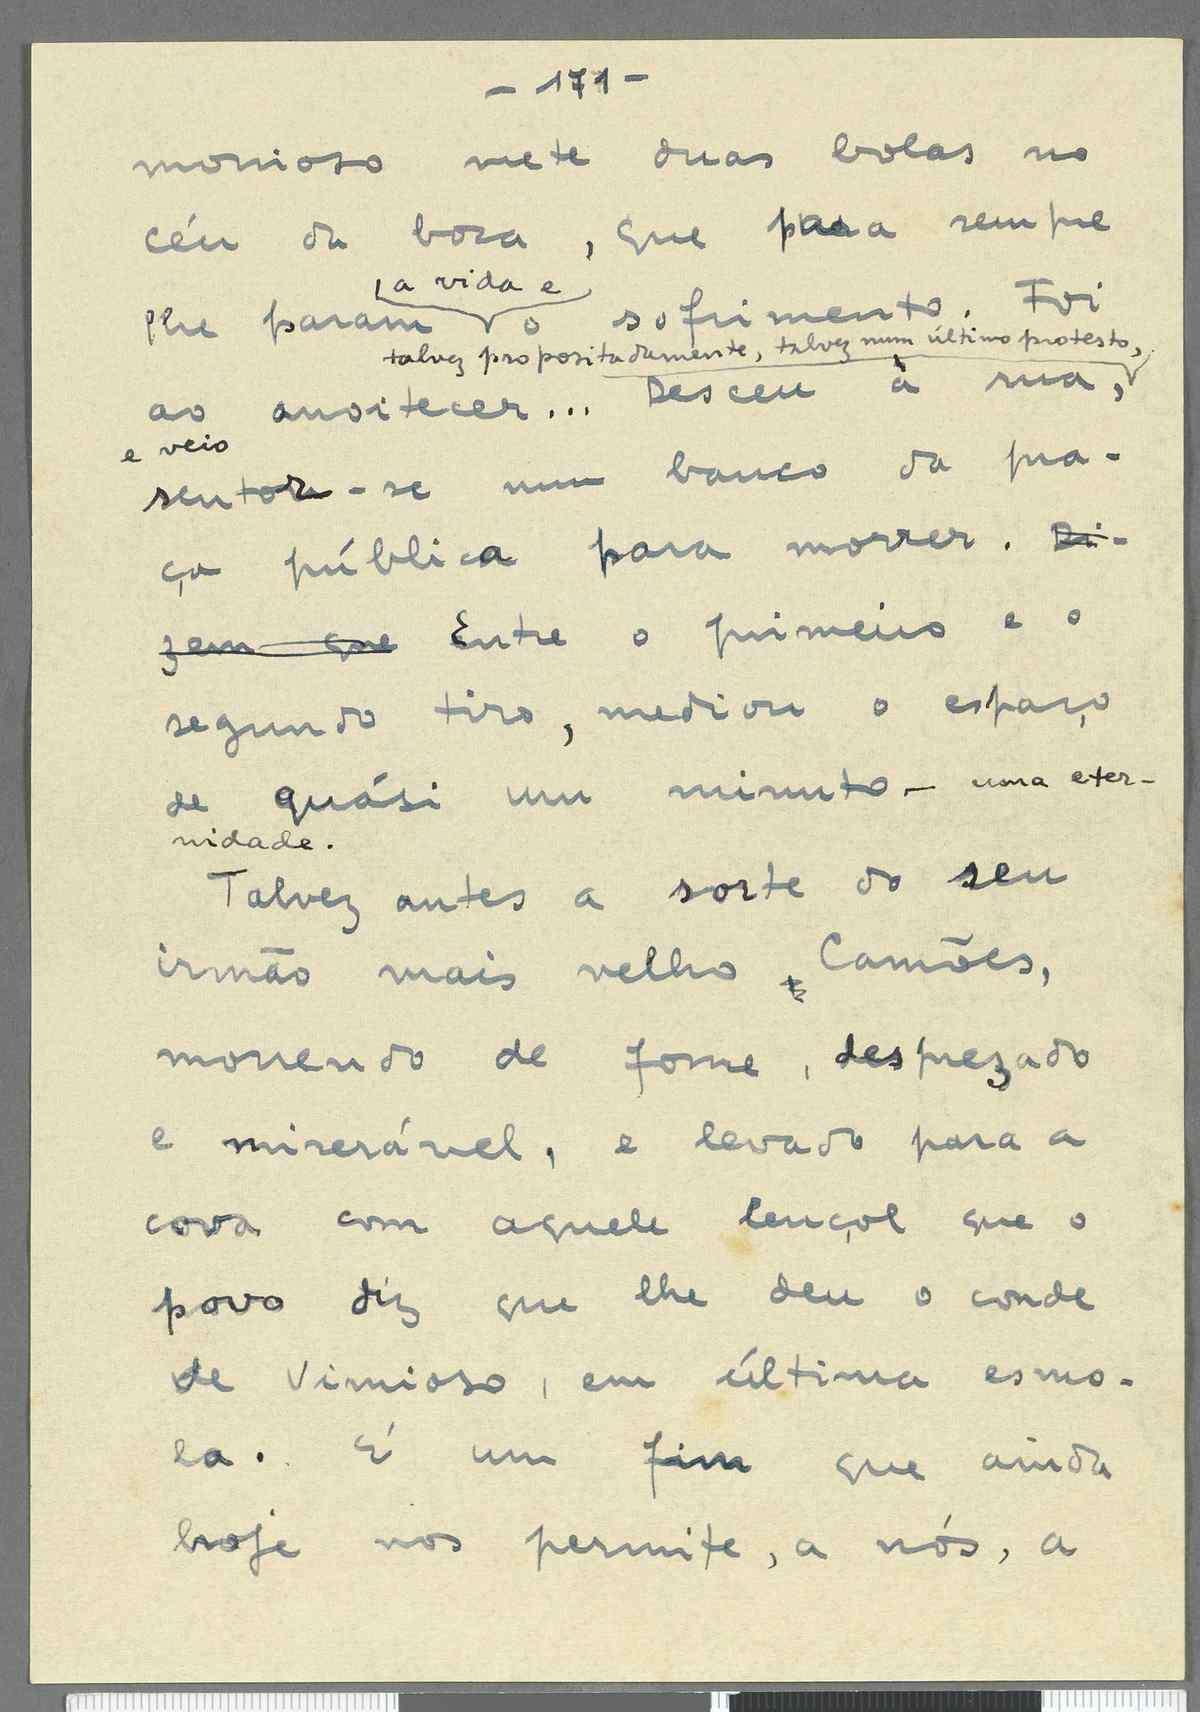 - 171 -
monioso mete duas bolas no
céu da boca, que para sempre
a vida e
lhe param o sofrimento. Foi
talvez propositadamente, talvez num último protesto,
ao anoitecer... Desceu à rua,
e veio
sentar-se num banco da pra-
ça pública para morrer. Di-
zem que Entre o primeiro e o
segundo tiro, mediou o espaço
de quási um minuto - uma eter-
nidade.
Talvez antes a sorte do seu
irmão mais velho Camões,
morrendo de fome, desprezado
e miserável, e levado para a
cova com aquele lençol que o
povo diz que lhe deu o conde
de Vimioso, em última esmo-
la. É um fim que ainda
hoje nos permite, a nós, a